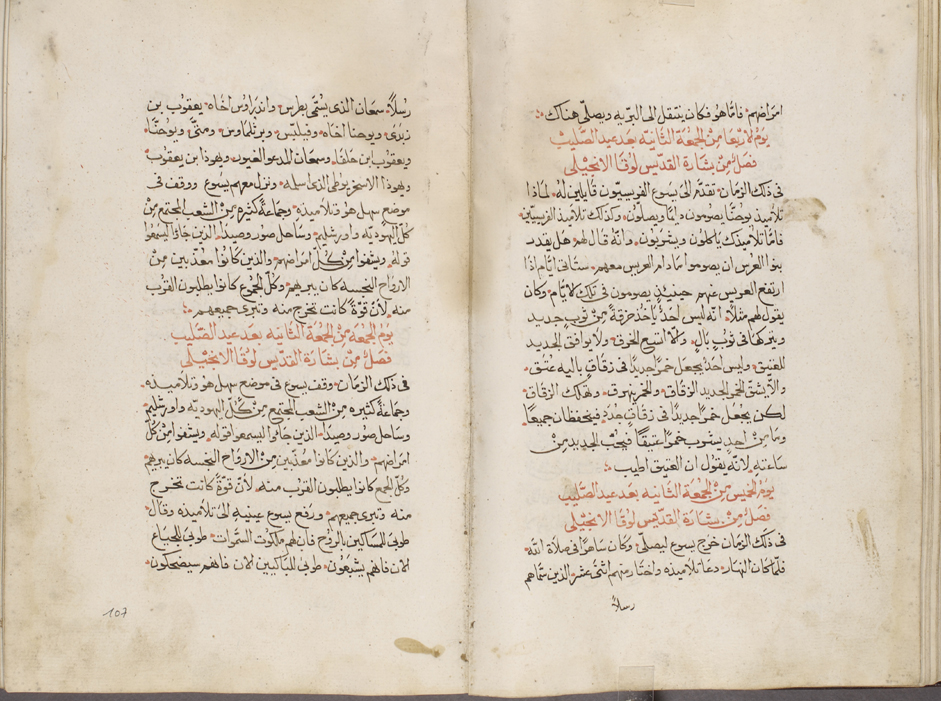 امراضهم٠ فامّا هو فكان ينتقل الى البرّيه ويصلّي هناك ؞
يوم الاربعا من الجمعة الثانيه بعد عيد الصّليب
فصل من بشارة القدّيس لوقا الانجيلي
في ذلك الزمان٠ تقدّم الى يسوع الفريسيّون قايلين له٠ لماذا
تلاميذ يوحنّا يصومون دايمًا ويصلّون٠ وكذلك تلاميذ الفريسيّين٠
فامّا تلاميذك ياكلون ويشربون٠ وانّه قال لهم٠ هل يقدر
بنوا العرس ان يصوموا ما دام العريس معهم٠ ستاتي ايّام اذا
ارتفع العريس عنهم حينيذٍ يصومون في تلك الايّام٠ وكان
يقول لهم مثلًا٠ انّه ليس احدٌ ياخذ خرقةً من ثوبٍ جديد
ويتركها في ثوبٍ بالٍ٠ وكلّا اتسع الخرق٠ ولا يوافق الجديد
للعتيق٠ وليس احدٌ يجعل خمرًا جديدًا في زقاق باليه عتق٠
والّا يشق الخمر الجديد الزقاق٠ والخمر يهرق٠ وتهلك الزقاق٠
لكن يُجعل خمرًا جديدًا في زقاقٍ جددٍ٠ فيحفظان جميعًا٠
وما من احدٍ يشرب خمرًا عتيقًا فيحب الجديد من
ساعته٠ لانّه يقول ان العتيق اطيب ؞
يوم الخميس من الجمعة الثانيه بعد عيد الصّليب
فصل من بشارة القدّيس لوقا الانجيلي
في ذلك الزمان خرج يسوع ليصلّي٠ وكان ساهرًا في صلاة الله٠
فلمّا كان النهار٠ دعا تلاميذه واختار منهم اثنى عشر الذين سمّاهم
رسلاً
رسلًا٠ سمعان الذي يسمّى بطرس٠ واندراوس اخاه٠ يعقوب بن
زبدى٠ ويوحنا اخاه٠ وفيلبّس٠ وبرثلماوس٠ ومتّى٠ ويوحنّا٠
ويعقوب ابن حلفا٠ وسمعان المدعو الغيور٠ ويهوذا بن يعقوب٠
ويهوذا الاسخريوطى الذي اسلمه٠ ونزل معهم يسوع ووقف في
موضع سهل هو وتلاميذه٠ وجماعةٌ كثيره من الشعب المجتمع من
كلّ اليهوديّه واورشليم٠ وساحل صور وصيدا٠ الذين جاؤا ليسمعوا
قوله٠ ويشفوا من كلّ امراضهم٠ والذين كانوا معذّبين من
الارواح النجسه كان يبريهم٠ وكلّ الجموع كانوا يطلبون القرب
منه٠ لانّ قوّةً كانت تخرج منه وتبرى جميعهم ؞
يوم الجمعه من الجمعة الثانيه بعد عيد الصّليب
فصل من بشارة القدّيس لوقا الانجيلي
في ذلك الزمان٠ وقف يسوع في موضع سهل هو وتلاميذه٠
وجماعةٌ كثيره من الشعب المجتمع من كلّ اليهوديّه واورشليم٠
وساحل صور وصيدا٠ الذين جاءوا ليسمعوا قوله٠ ويشفوا من كلّ
امراضهم٠ والذين كانوا معذّبين من الارواح النجسه كان يبريهم٠
وكلّ الجمع كانوا يطلبون القرب منه٠ لانّ قوّةً كانت تخرج
منه وتبرى جميعهم٠ ورفع يسوع عينيه الى تلاميذه وقال٠
طوبى للمساكين بالروح فان لهم ملكوت السموات٠ طوبى للجياع
الان فانهم يشبعون٠ طوبى للباكيين الان فانهم سيضحكون٠
107